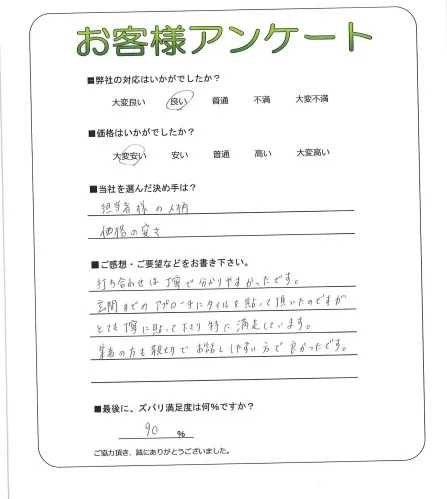 お客様アンケート
■弊社の対応はいかがでしたか？
大変良い 良い 普通 不満 大変不満
■価格はいかがでしたか？
大変安い 安い 普通 高い 大変高い
■当社を選んだ決め手は？
担当者様の人柄
価格の安さ
■ご感想・ご要望などをお書き下さい。
打ち合わせは丁寧で分かりやすかったです。
玄関までのアプローチにタイルを貼って頂いたのですが
とても丁寧に貼って下さり特に満足しています。
業者の方も親切でお話ししやすい方で良かったです。
■最後に、ズバリ満足度は何%ですか？
90 %
ご協力頂き、誠にありがとうございました。